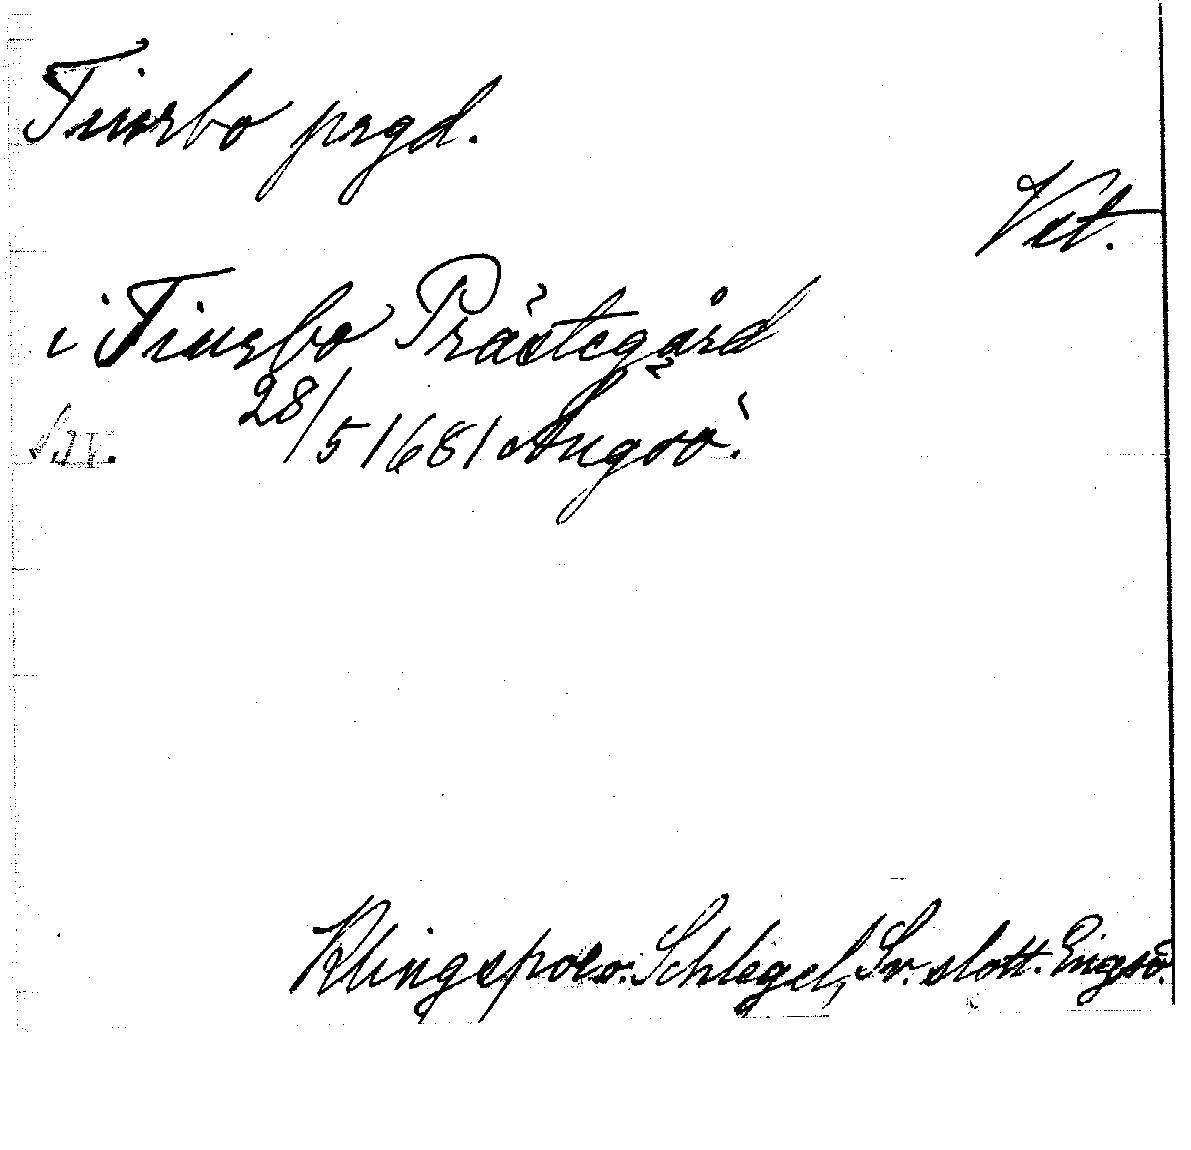 Tiurbo prgd.
Vst.
i Tiurbo Prästegård
28/5 1681 Ängsö.
Klingspor o. Schlegel, Sv. slott. Engsö.